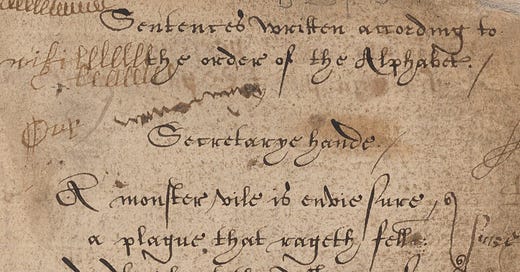 Sentences written according to
the order of the Alphabet. /
Our
Secretarye hande /
A monster vile is envie sure,
a plague that rageth fell:
sure